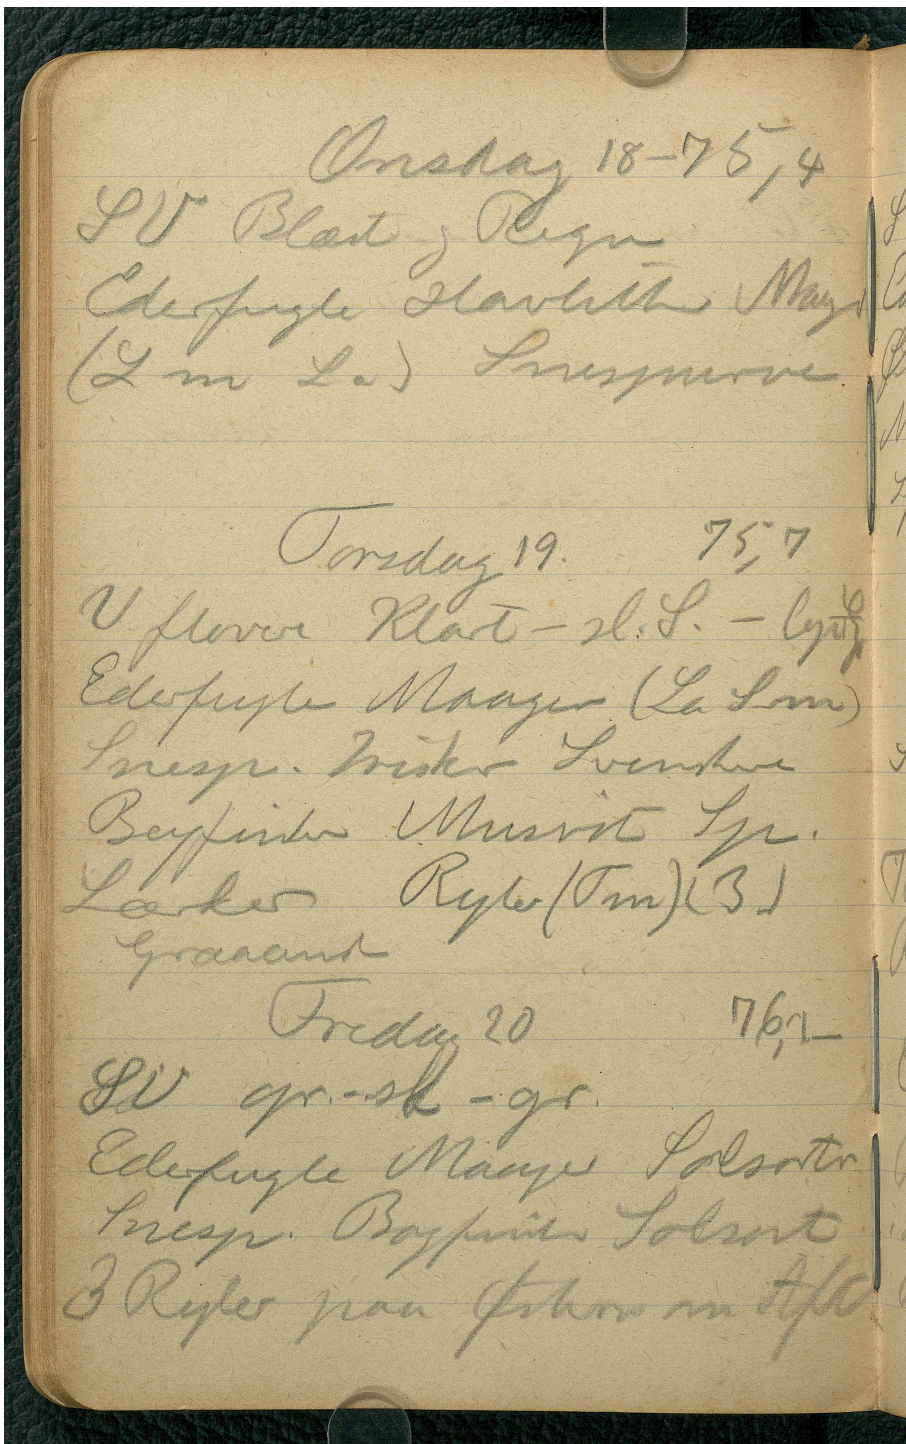 Onsdag 18 – 75,4
SV Blæst og Regn
Ederfugle Havlitter Maager
(L m La) Snespurve
Torsdag 19. 75,7
V flovere Klart – sl. S. –
Ederfugle Maager (La S m)
Snesp. Irisker Svenskere
Bogfinker Musvit Sp.
Lærker Ryler (Tm) (3)
Graaand
Fredag 20 76,2
SV gr. – sk – gr.
Ederfugle Maager Solsorter
Snesp. Bogfinke Solsort
3 Ryler paa